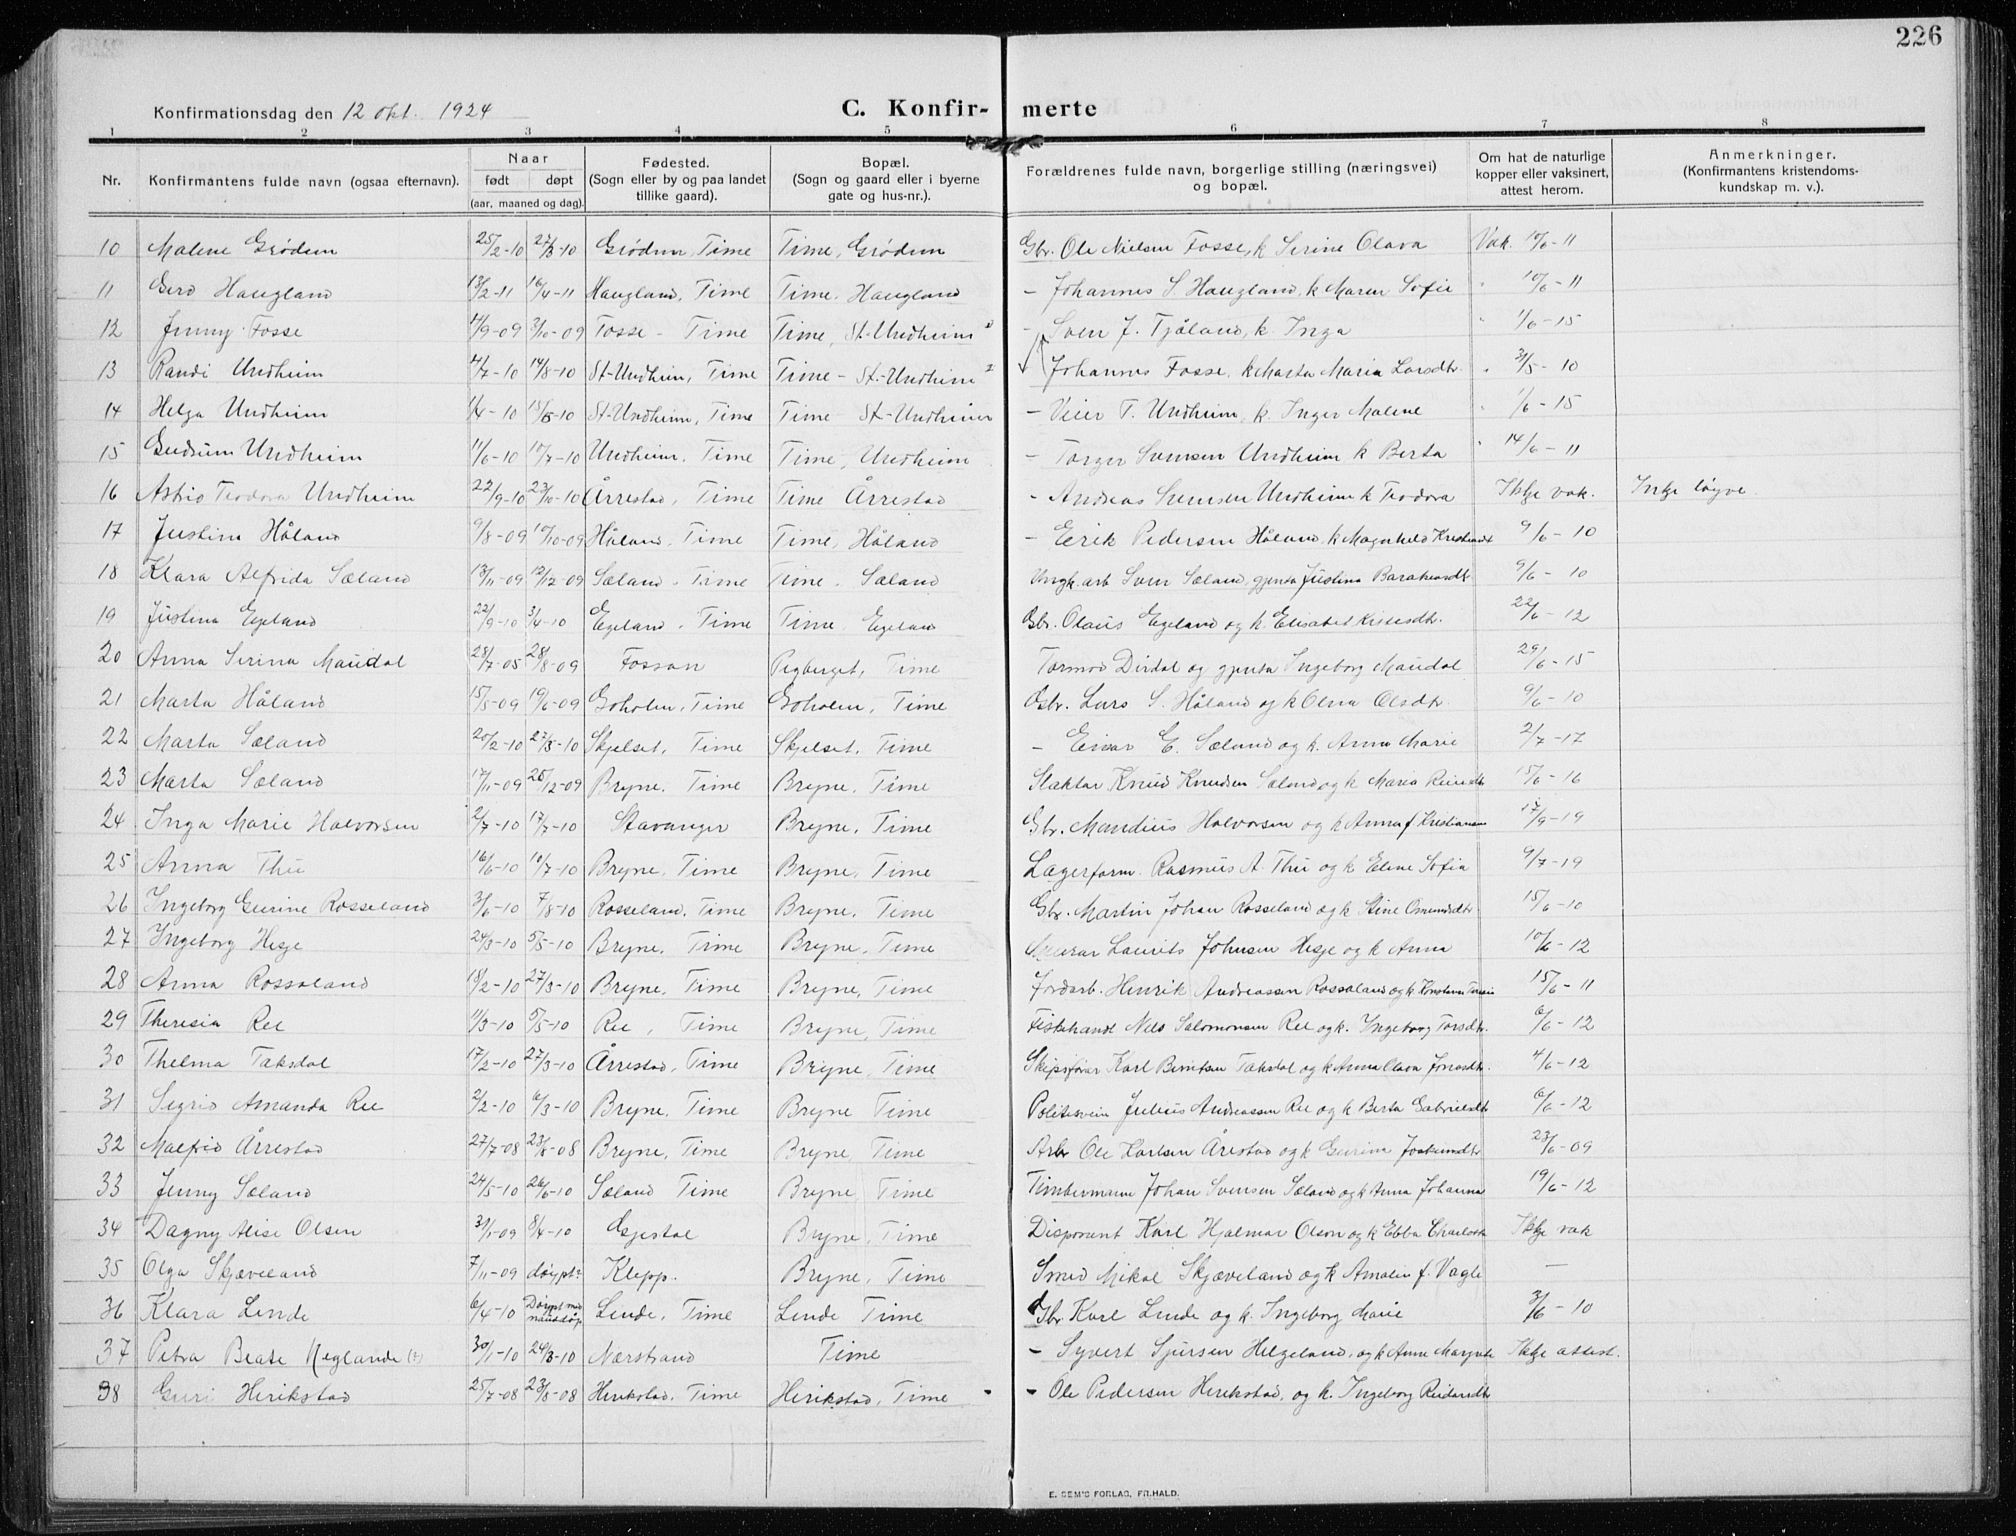 226
Konfirmationsdag den 12 okt. 1924
C. Konfir- merte
1 2 3 4 5 6 7 8
Nr. Konfirmantens fulde navn (ogsaa efternavn). Naar født døpt (aar, maaned og dag). Fødested. (Sogn eller by og paa landet tillike gaard). Bopæl. (Sogn og gaard eller i byerne gate og hus-nr.). Forældrenes fulde navn, borgerlige stilling (næringsvei) og bopæl. Om hat de naturlige kopper eller vaksinert, attest herom. Anmerkninger. (Konfirmantens kristendomskundskap m. v.).
10 Malene Grødem 25/2-10 27/3-10 Grødem, Time Time, Grødem Gbr. Ole Nielsen Fosse, k Serine Olava Vak. 10/6-11
11 Gerd Haugland 13/2-11 16/4-11 Haugland, Time Time, Haugland – Johannes S. Haugland, k Maren Sofie " 10/6-11
12 Jenny Fosse 3/10-09 Fosse - Time Time, St-Undheim – Sven J. Tjåland, k. Inga " 1/6-15
13 Randi Undheim 4/7-10 14/8-10 St-Undheim, Time Time - St-Undheim Johannes Fosse, k Marta Maria Larsdtr. " 31/5-10
14 Helga Undheim 1/4-10 15/5-10 St-Undheim, Time Time St-Undheim – Veier T. Undheim, k. Inger Malene " 1/6-15
15 Gudrun Undheim 11/6-10 17/7-10 Undheim, Time Time, Undheim – Torger Svensen Undheim k Berta " 14/6-11
16 Astrid Teodora Undheim 22/9-10 23/10-10 Årrestad, Time Time Årrestad – Andreas Svensen Undheim k Teodora Ikkje vak. Inkje løyve
17 Justina Håland 9/8-09 10/10-09 Håland, Time Time, Håland – Eirik Pedersen Håland, k Magnhild 9/6-10
18 Klara Alfrida Sæland 13/11-09 12/12-09 Sæland - Time Time - Sæland Ungk. arb Sven Sæland, gjenta Justina 9/6-10
19 Justina Egeland 22/9-10 Egeland - Time Time Egeland Gbr. Olaus Egeland og k. Elisabet 22/6-12
20 Anna Serina Maudal 28/7-05 28/8-09 Fossan Time Tormod Dirdal og gjenta Ingeborg Maudal 29/6-15
21 Marta Håland 15/5-09 19/6-09 Goholen, Time Goholen, Time Gbr. Lars S. Håland og k Olena Olsdtr 9/6-10
22 Marta Sæland 20/2-10 27/3-10 Skjelset, Time Skjelset, Time – Einar E. Sæland og k. Anna Marie 2/7-17
23 Marta Sæland 17/11-09 25/12-09 Bryne, Time Bryne, Time Slaktar Knud Knudsen Sæland og k Maria 15/6-16
24 Inga Marie Halvorsen 2/7-10 17/7-10 Stavanger Bryne, Time Gbr. Mandius Halvorsen og k Anna f Kristiansen 17/9-19
25 Anna Thu 16/6-10 10/7-10 Bryne, Time Bryne, Time Lagerform. Rasmus A. Thu og k Eline Sofia 9/7-19
26 Ingeborg Gurine Rosseland 3/6-10 7/8-10 Rosseland, Time Bryne, Time Gbr. Martin Johan Rosseland og k Stine 15/6-10
27 Ingeborg Hesje 24/3-10 5/5-10 Bryne, Time Bryne, Time Laurits Johnsen Hesje og k Anna 10/6-12
28 Anna Rossaland 18/2-10 27/3-10 Bryne, Time Bryne, Time Jordarb. Henrik Andreassen Rossaland og k 15/6-11
29 Theresia Ree 11/3-10 5/5-10 Ree, Time Bryne, Time Fiskehandl Nels Salomonsen Ree og k. Ingeborg Torsdtr. 6/6-12
30 Thelma Taksdal 17/2-10 27/3-10 Årrestad, Time Bryne, Time Skipsførar Karl Berntsen Taksdal og k Anna Olava Jonasdtr. 4/6-12
31 Sigrid Amanda Ree 2/2-10 6/3-10 Bryne, Time Bryne Time Politisvein Julius Andreassen Ree og k Berta Gabrielsdtr 6/6-12
32 Malfrid Årrestad 27/7-08 23/8-08 Bryne, Time Bryne, Time Arb Ole Karlsen Årestad og k Gurina 23/6-09
33 Jenny Sæland 24/5-10 26/6-10 Sæland Time Bryne Time Timbermann Johan Svensen Sæland og k Anna Johanna 19/6-12
34 Dagny Alise Olsen 8/4-10 Gjestal Bryne, Time Disponent Karl Hjalmar Olson og k Ebba Ikkje vak
35 Olga Skjæveland 7/11-09 døypt? Klepp. Bryne, Time Smed Mikal Skjæveland og k Amalia f. Vagle —
36 Klara Lende 6/4-10 Døypt med naudsdåp Lende, Time Lende Time Gbr. Karl Lende og k. Ingeborg Marie 3/6-10
37 Petra Beate (?) 30/1-10 24/3-10 Nærstrand Time – Syvert Sjursen Helgeland, og k Anne Ikkje attest.
38 Guri Herikstad 25/7-08 23/8-08 Herikstad, Time Herikstad, Time – Ole Pedersen Herikstad, og k. Ingeborg Reidarsdtr
E. SEM'S FORLAG, FR.HALD.